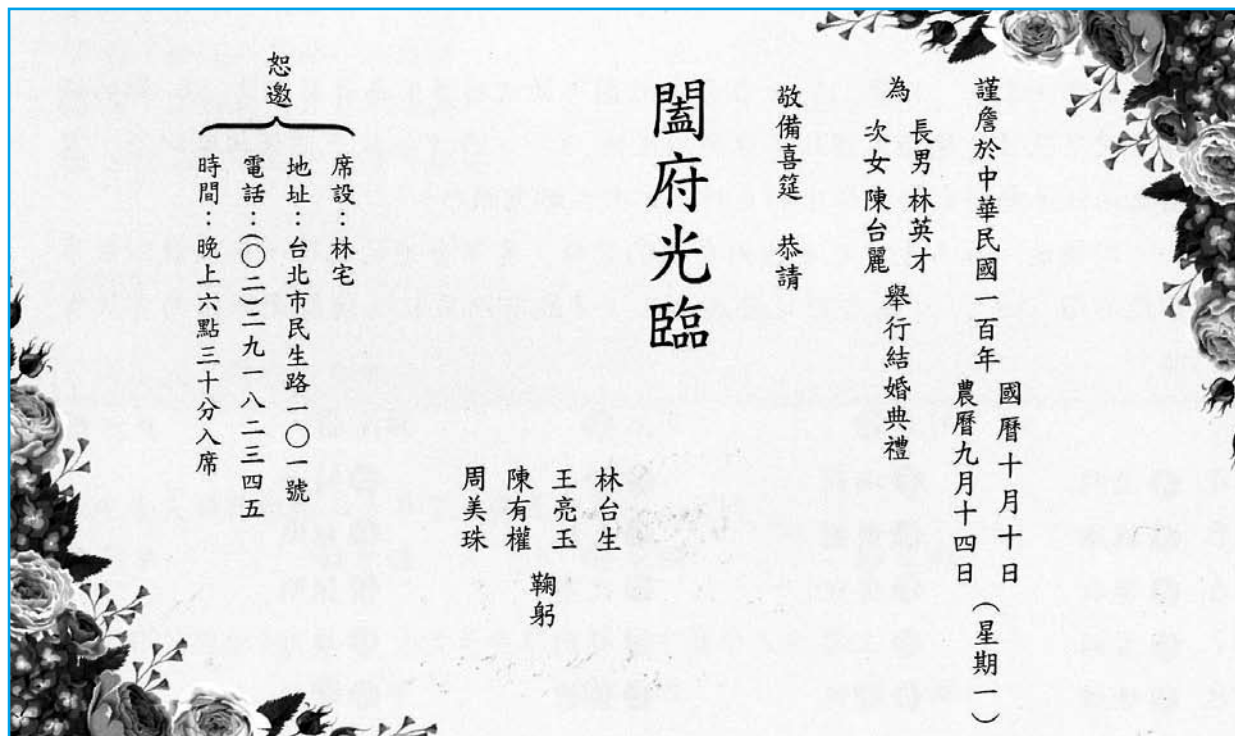 謹詹於中華民國一百年
國曆十月十日
農曆九月十四日
（星期一）
為
長男林英才
次女陳台麗
舉行結婚典禮
敬備喜筵 恭請
闔府光臨
林台生
王亮玉
陳有權
周美珠
鞠躬
恕邀
席設：林宅
地址：台北市民生路一〇一號
電話：(〇二)二九一八二三四五
時間：晚上六點三十分入席